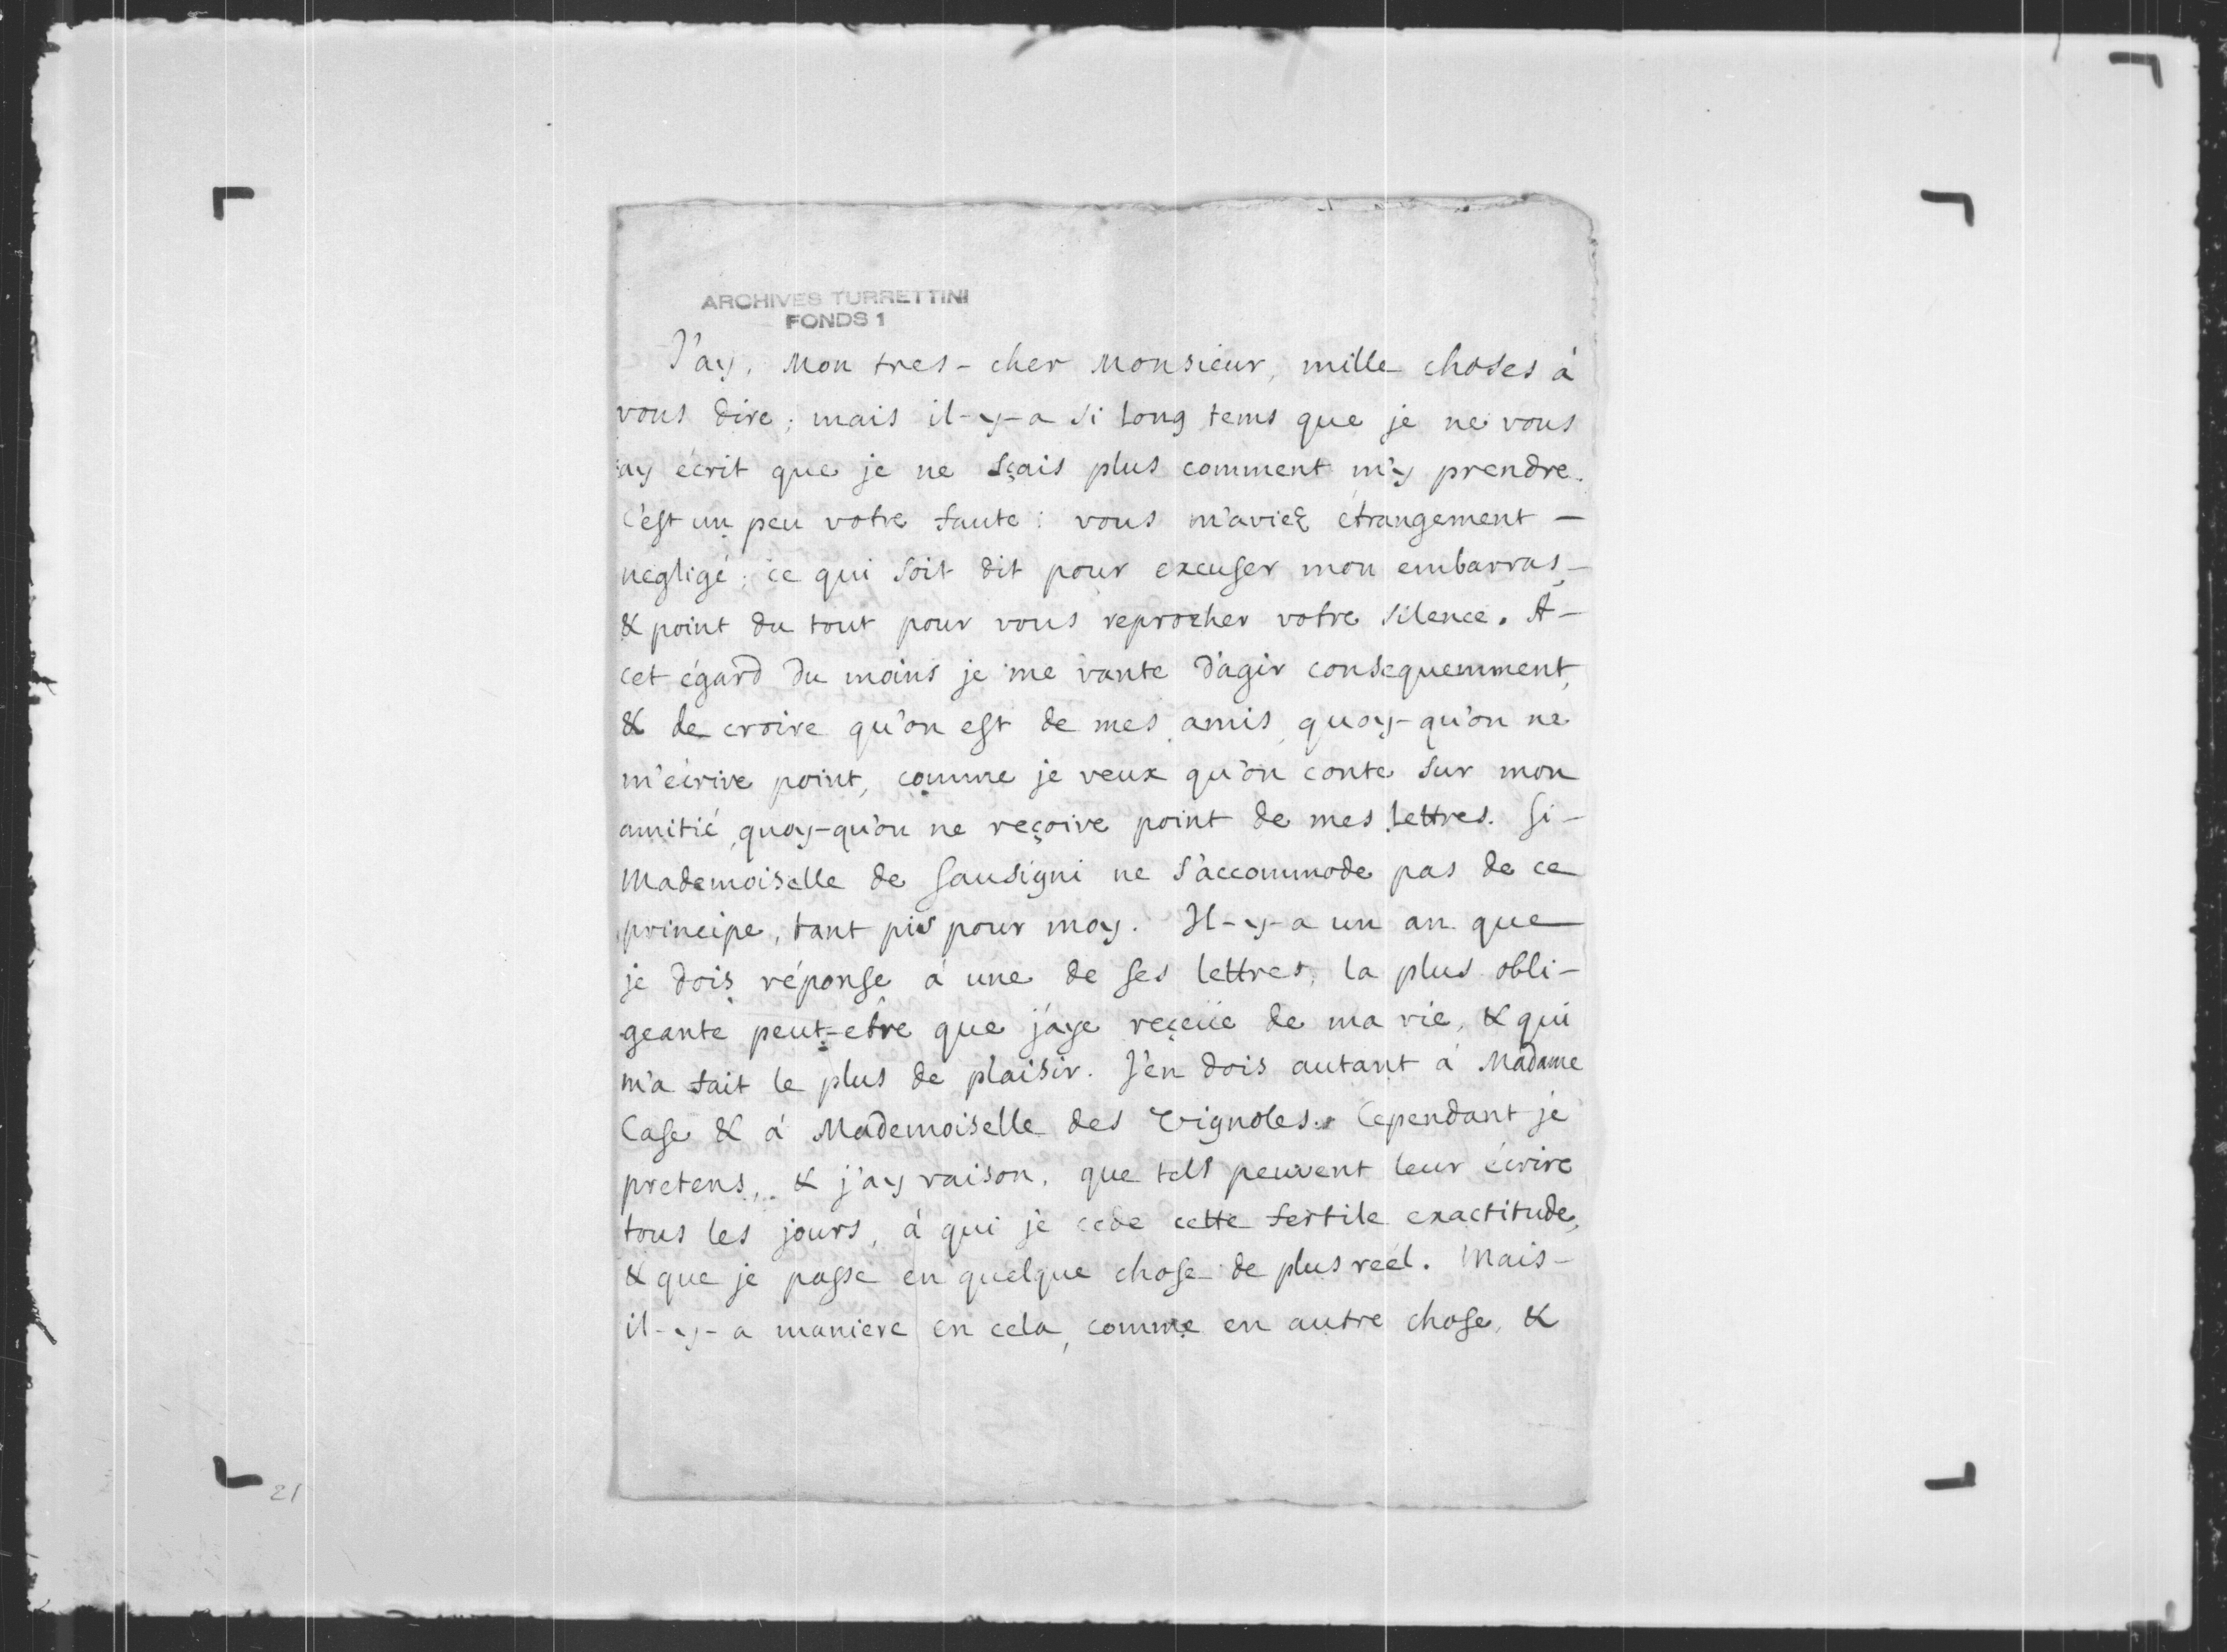 ARCHIVES TURRETTINI
FONDS 1
J'ay, Mon tres-cher Monsieur, mille choses à
vous dire; mais il-y-a si long tems que je ne vous
ay écrit que je ne sçais plus comment m'y prendre.
C'est un peu votre faute: vous m'aviez étrangement -
negligé; ce qui soit dit pour excuser mon embarras, -
& point du tout pour vous reprocher votre silence. A -
cet égard du moins je me vante d'agir consequemment,
& de croire qu'on est de mes amis, quoy-qu'on ne
m'écrive point, comme je veux qu'on conte sur mon
amitié, quoy-qu'on ne reçoive point de mes lettres. Si -
Mademoiselle de Gausigni ne s'accommode pas de ce
principe, tant pis pour moy. Il-y-a un an que
je dois réponse à une de ses lettres, la plus obli-
geante peut-etre que j'aye reçeüe de ma vie, & qui
m'a fait le plus de plaisir. J'en dois autant à Madame
Case & à Mademoiselle des Vignoles. Cependant je
pretens, & j'ay raison, que tels peuvent leur écrire
tous les jours, à qui je cede cette fertile exactitude,
& que je passe en quelque chose de plus reél. Mais -
il-y-a maniere en cela, comme en autre chose, &
21